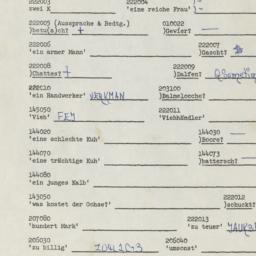 222003 222004
zwei X 'eine reiche Frau'
222005 (Aussprache & Bedtg.) 010022
)betu(a)ch? + )Gevier? —
222006
'ein armer Mann' 222007
)Gascht?
222008 222009
)Chattes? + )Dalfen?
222010 203100
'ein Handwerker' VERKMAN )Balmelocche?
145050 222011
'Vieh' FEY 'Viehhändler'
144020 144030 —
'eine schlechte Kuh' )Boore?
144070 144073
'eine trächtige Kuh' )hattersch? —
144080
'ein junges Kalb'
143050 222012
'was kostet der Ochse?' )schuckt?
207080 222013
'hundert Mark' 'zu teuer'
206030 206040
'zu billig' 'umsonst'